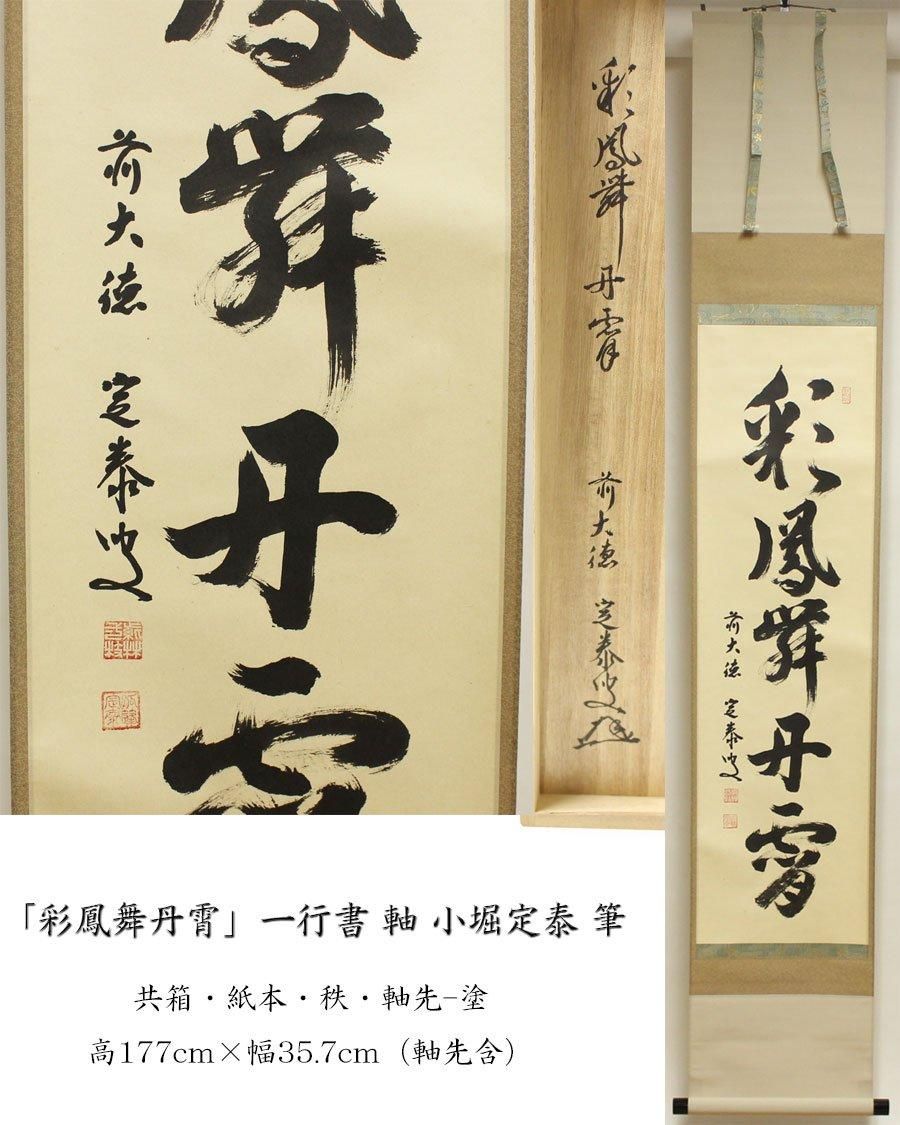 鳳舞丹霄
前大徳 定泰叟
彩鳳舞丹霄
前大徳 定泰叟
彩鳳舞丹霄
前大徳 定泰叟
「彩鳳舞丹霄」一行書 軸 小堀定泰 筆
共箱・紙本・秩・軸先-塗
高177cm×幅35.7cm（軸先含）